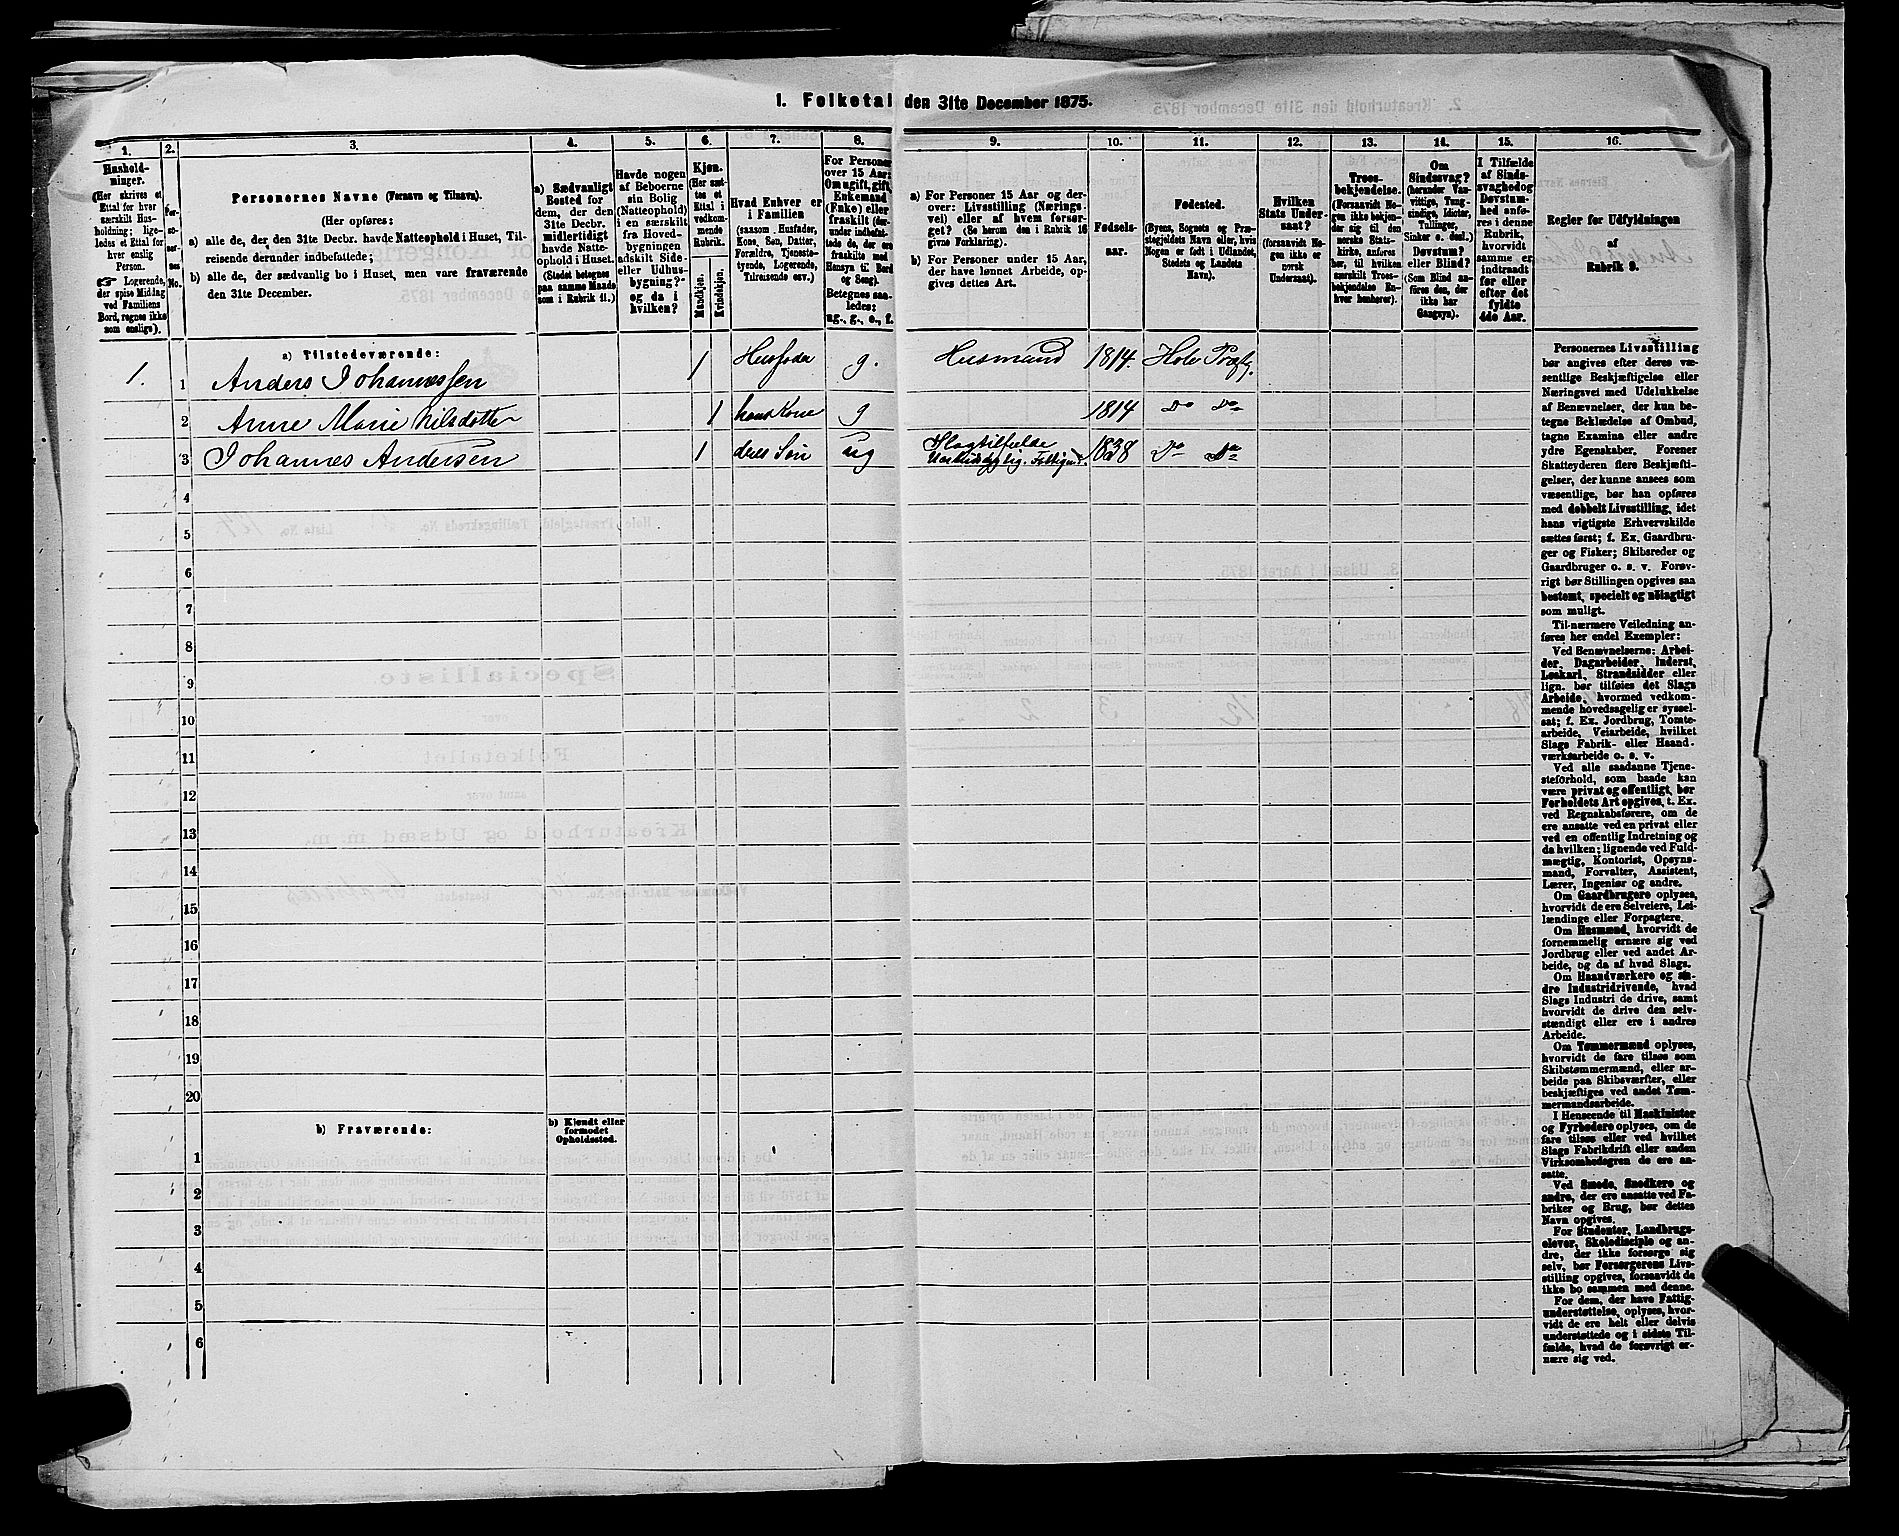 1. Folketal den 31te December 1875.
1.
Hushold-
ninger.
(Her skrives et
Ettal for hver
særskilt Hus-
holdning; lige-
ledes et Ettal for
hver enslig
Person.
☛ Logerende,
der spise Middag
ved Familiens
Bord, regnes ikke
som enslige).
2.
No.
3.
Personernes Navne (Fornavn og Tilnavn).
(Her opføres:
a) alle de, der den 31te Decbr. havde Natteophold i Huset, Til-
reisende derunder indbefattede;
b) alle de, der sædvanlig bo i Huset, men vare fraværende
den 31te December.
4.
a) Sædvanligt
Bosted for
dem, der den
31te Decbr.
midlertidigt
havde Natte-
ophold i Huset.
(Stedet betegnes
paa samme Maade
som i Rubrik 11.)
5.
Havde nogen
af Beboerne
sin Bolig
(Natteophold)
i en særskilt
fra Hoved-
bygningen
adskilt Side-
eller Udhus-
bygning?
og da i
hvilken?
6.
Kjøn.
(Her sæt-
tes et
Ettal i
vedkom-
mende
Rubrik.
Mandkjøn.
Kvindekjøn.
7.
Hvad Enhver er
i Familien
(saasom Husfader,
Kone, Søn, Datter,
Forældre, Tjeneste-
tyende, Logerende,
Tilreisende osv.)
8.
For Personer
over 15 Aar:
Om ugift, gift,
Enkemand
(Enke) eller
fraskilt (her-
under indbefat-
tede de, der ere
fraskilte med
Hensyn til Bord
og Seng).
Betegnes saa-
ledes:
ug., g., e., f.
9.
a) For Personer 15 Aar og der-
over: Livsstilling (Nærings-
vei) eller af hvem forsør-
get? (Se herom den i Rubrik 16
givne Forklaring).
b) For Personer under 15 Aar,
der have lønnet Arbeide, op-
gives dettes Art.
10.
Fødsels-
aar.
11.
Fødested.
(Byens, Sognets og Præ-
stegjeldets Navn eller, hvis
Nogen er født i Udlandet,
Stedets og Landets
Navn).
12.
Hvilken
Stats Under-
saat?
(forsaavidt No-
gen ikke er
norsk
Undersaat).
13.
Troes-
bekjendelse.
(Forsaavidt No-
gen ikke bekjen-
der sig til den
norske Stats-
kirke, anføres
her, til hvilken
særskilt Troes-
bekjendelse En-
hver henhører).
14.
Om
Sindssvag?
(herunder Van-
vittige, Tung-
sindige, Idioter,
Tullinger,
Sinker o. desl.)
Døvstum?
eller Blind?
(Som Blind an-
føres den, der
ikke har
Gangsyn).
15.
I Tilfælde
af Sinds-
svaghed og
Døvstum-
hed anfø-
res i denne
Rubrik,
hvorvidt
samme er
indtraadt
før eller
efter det
fyldte
4de Aar.
16.
Regler for Udfyldningen
af
Rubrik 9.
a) Tilstedeværende:
1. 1 Anders Johannessen 1 Husfader g. Husmand 1814. Hole Præstg.
2 Anne Marie Nilsdotter 1 hans Kone g 1814 Do Do
3 Johannes Andersen 1 deres Søn ug Slagtilfælde 1838 Do Do
4
5
6
7
8
9
10
11
12
13
14
15
16
17
18
19
20
b) Fraværende:
b) Kjendt eller
formodet
Opholdssted.
1
2
3
4
5
6
Personernes Livsstilling
bør angives efter deres væ-
sentlige Beskjæftigelse eller
Næringsvei med Udelukkelse
af Benævnelser, der kun be-
tegne Beklædelse af Ombud,
tagne Examina eller andre
ydre Egenskaber. Forener
Skatteyderen flere Beskjæfti-
gelser, der kunne ansees som
væsentlige, bør han opføres
med dobbelt Livsstilling, idet
hans vigtigste Erhvervskilde
sættes først; f. Ex. Gaardbru-
ger og Fisker; Skibsreder og
Gaardbruger o. s. v. Forøv-
rigt bør Stillingen opgives saa
bestemt, specielt og nøiagtigt
som muligt.
Til nærmere Veiledning an-
føres her endel Exempler:
Ved Benævnelserne: Arbei-
der, Dagarbeider, Inderst,
Løskarl, Strandsidder eller
lign. bør tilføies det Slags
Arbeide, hvormed vedkom-
mende hovedsagelig er syssel-
sat; f. Ex. Jordbrug, Tomte-
arbeide, Veiarbeide, hvilket
Slags Fabrik- eller Haand-
værksarbeide o. s. v.
Ved alle saadanne Tjene-
steforhold, som baade kan
være privat og offentligt, bør
Forholdets Art opgives, t. Ex.
ved Regnskabsførere, om de
ere ansatte ved en privat eller
ved en offentlig Indretning og
da hvilken; lignende ved Fuld-
mægtig, Kontorist, Opsyns-
mand, Forvalter, Assistent,
Lærer, Ingeniør og andre.
Om Gaardbrugere oplyses,
hvorvidt de ere Selveiere, Lei-
lændinge eller Forpagtere.
Om Husmænd, hvorvidt de
fornemmelig ernære sig ved
Jordbrug eller ved andet Ar-
beide, og da af hvad Slags.
Om Haandværkere og an-
dre Industridrivende, hvad
Slags Industri de drive, samt
hvorvidt de drive den selv-
stændigt eller ere i andres
Arbeide.
Om Tømmermænd oplyses,
hvorvidt de fare tilsøs som
Skibstømmermænd, eller ar-
beide paa Skibsværfter, eller
beskjæftiges ved andet Tøm-
mermandsarbeide.
I Henseende til Maskinister
og Fyrbødere oplyses, om de
fare tilsøs eller ved hvilket
Slags Fabrikdrift eller anden
Virksomhedsgren de ere an-
satte.
Ved Smede, Snedkere og
andre, der ere ansatte ved Fa-
briker og Brug, bør dettes
Navn opgives.
For Studenter, Landbrugs-
elever, Skoledisciple og an-
dre, der ikke forsørge sig
selv, bør Forsørgerens Livs-
stilling opgives, forsaavidt de
ikke bo sammen med denne.
For dem, der have Fattig-
understøttelse, oplyses, hvor-
vidt de ere helt eller delvis
understøttede og i sidste Til-
fælde, hvad de forøvrigt er-
nære sig ved.